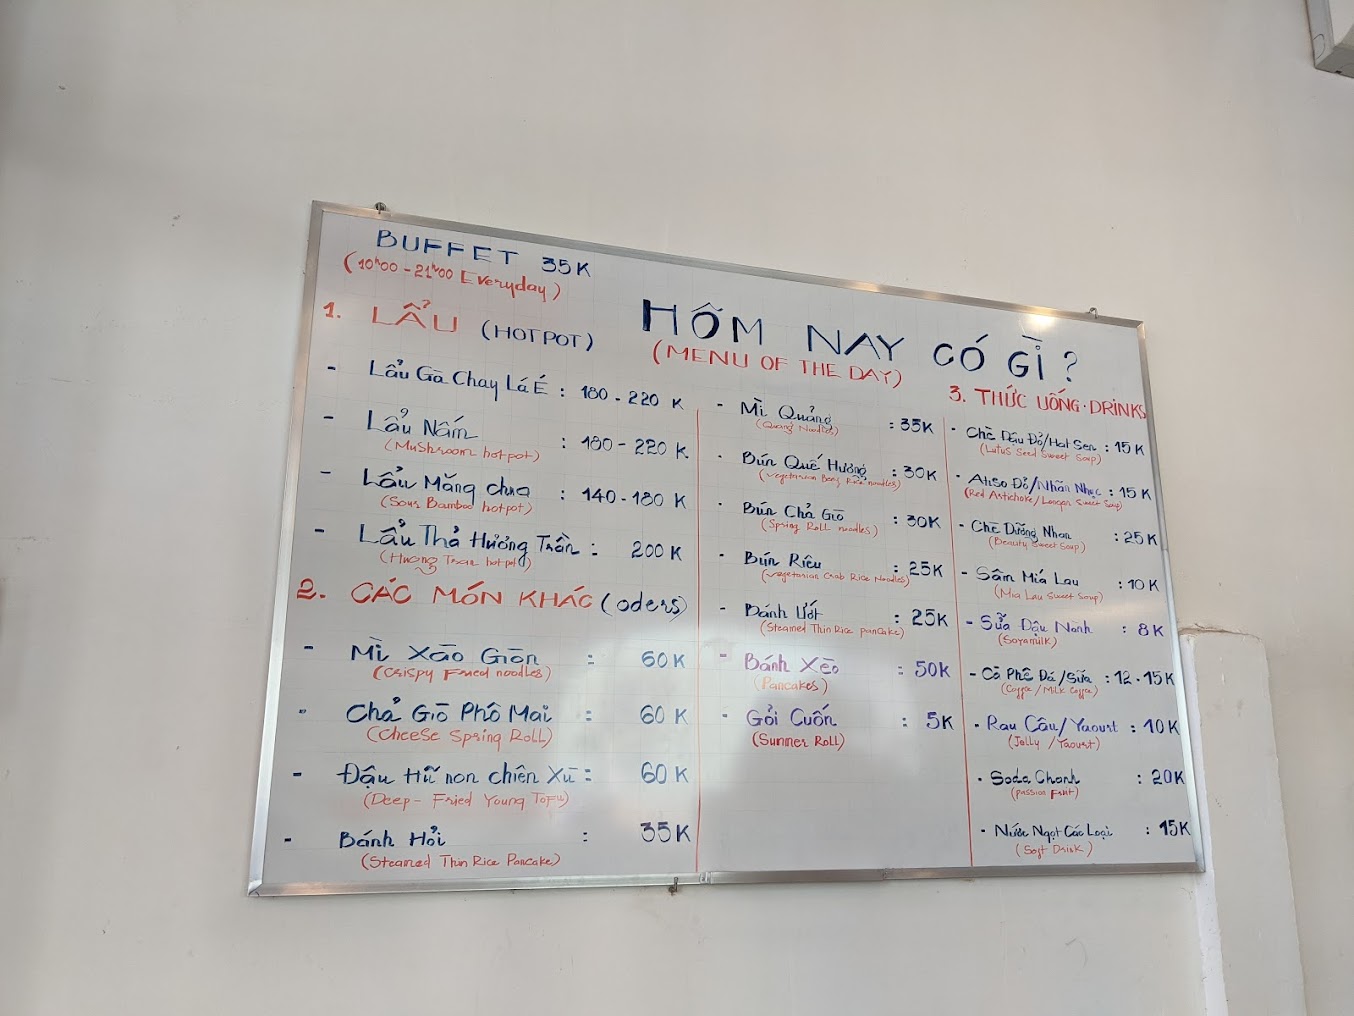 BUFFET 35K
(10h00 - 21h00 Everyday)
HÔM NAY CÓ GÌ?
(MENU OF THE DAY)
1. LẨU (HOTPOT)
- Lẩu Gà Chay Lá É : 180 - 220 K
- Lẩu Nấm : 180 - 220 K
(Mushroom hotpot)
- Lẩu Măng chua : 140 - 180 K
(Sour Bamboo hotpot)
- Lẩu Thả Hương Trần : 200 K
(Huong Tran hotpot)
2. CÁC MÓN KHÁC (oders)
- Mì Xào Giòn : 60 K
(Crispy Fried noodles)
- Chả Giò Phô Mai : 60 K
(Cheese Spring Roll)
- Đậu Hũ non chiên Xù : 60 K
(Deep - Fried Young Tofu)
- Bánh Hỏi : 35K
(Steamed Thin Rice Pancake)
- Mì Quảng : 35K
(Quang Noodles)
- Bún Quế Hương : 30K
(Vegetarian Rice noodles)
- Bún Chả Giò : 30K
(Spring Roll noodles)
- Bún Riêu : 25K
(Vegetarian Crab Rice Noodles)
- Bánh Ướt : 25K
(Steamed Thin Rice pancake)
- Bánh Xèo : 50K
(Pancakes)
- Gỏi Cuốn : 5K
(Summer Roll)
3. THỨC UỐNG - DRINKS
- Chè Đậu Đỏ/Hạt Sen : 15 K
(Lutus Seed Sweet Soup)
- Atiso Đỏ/Nhãn Nhục : 15 K
(Red Artichoke/Longan Sweet Soup)
- Chè Dưỡng Nhan : 25 K
(Beauty Sweet Soup)
- Sâm Mía Lau : 10 K
(Mia Lau Sweet Soup)
- Sữa Đậu Nành : 8K
(Soyamilk)
- Cà Phê Đá/Sữa : 12 - 15K
(Coffee / Milk Coffee)
- Rau Câu/Yaourt : 10K
(Jelly / Yaourt)
- Soda Chanh : 20K
(Passion Fruit)
- Nước Ngọt Các Loại : 15K
(Soft Drink)